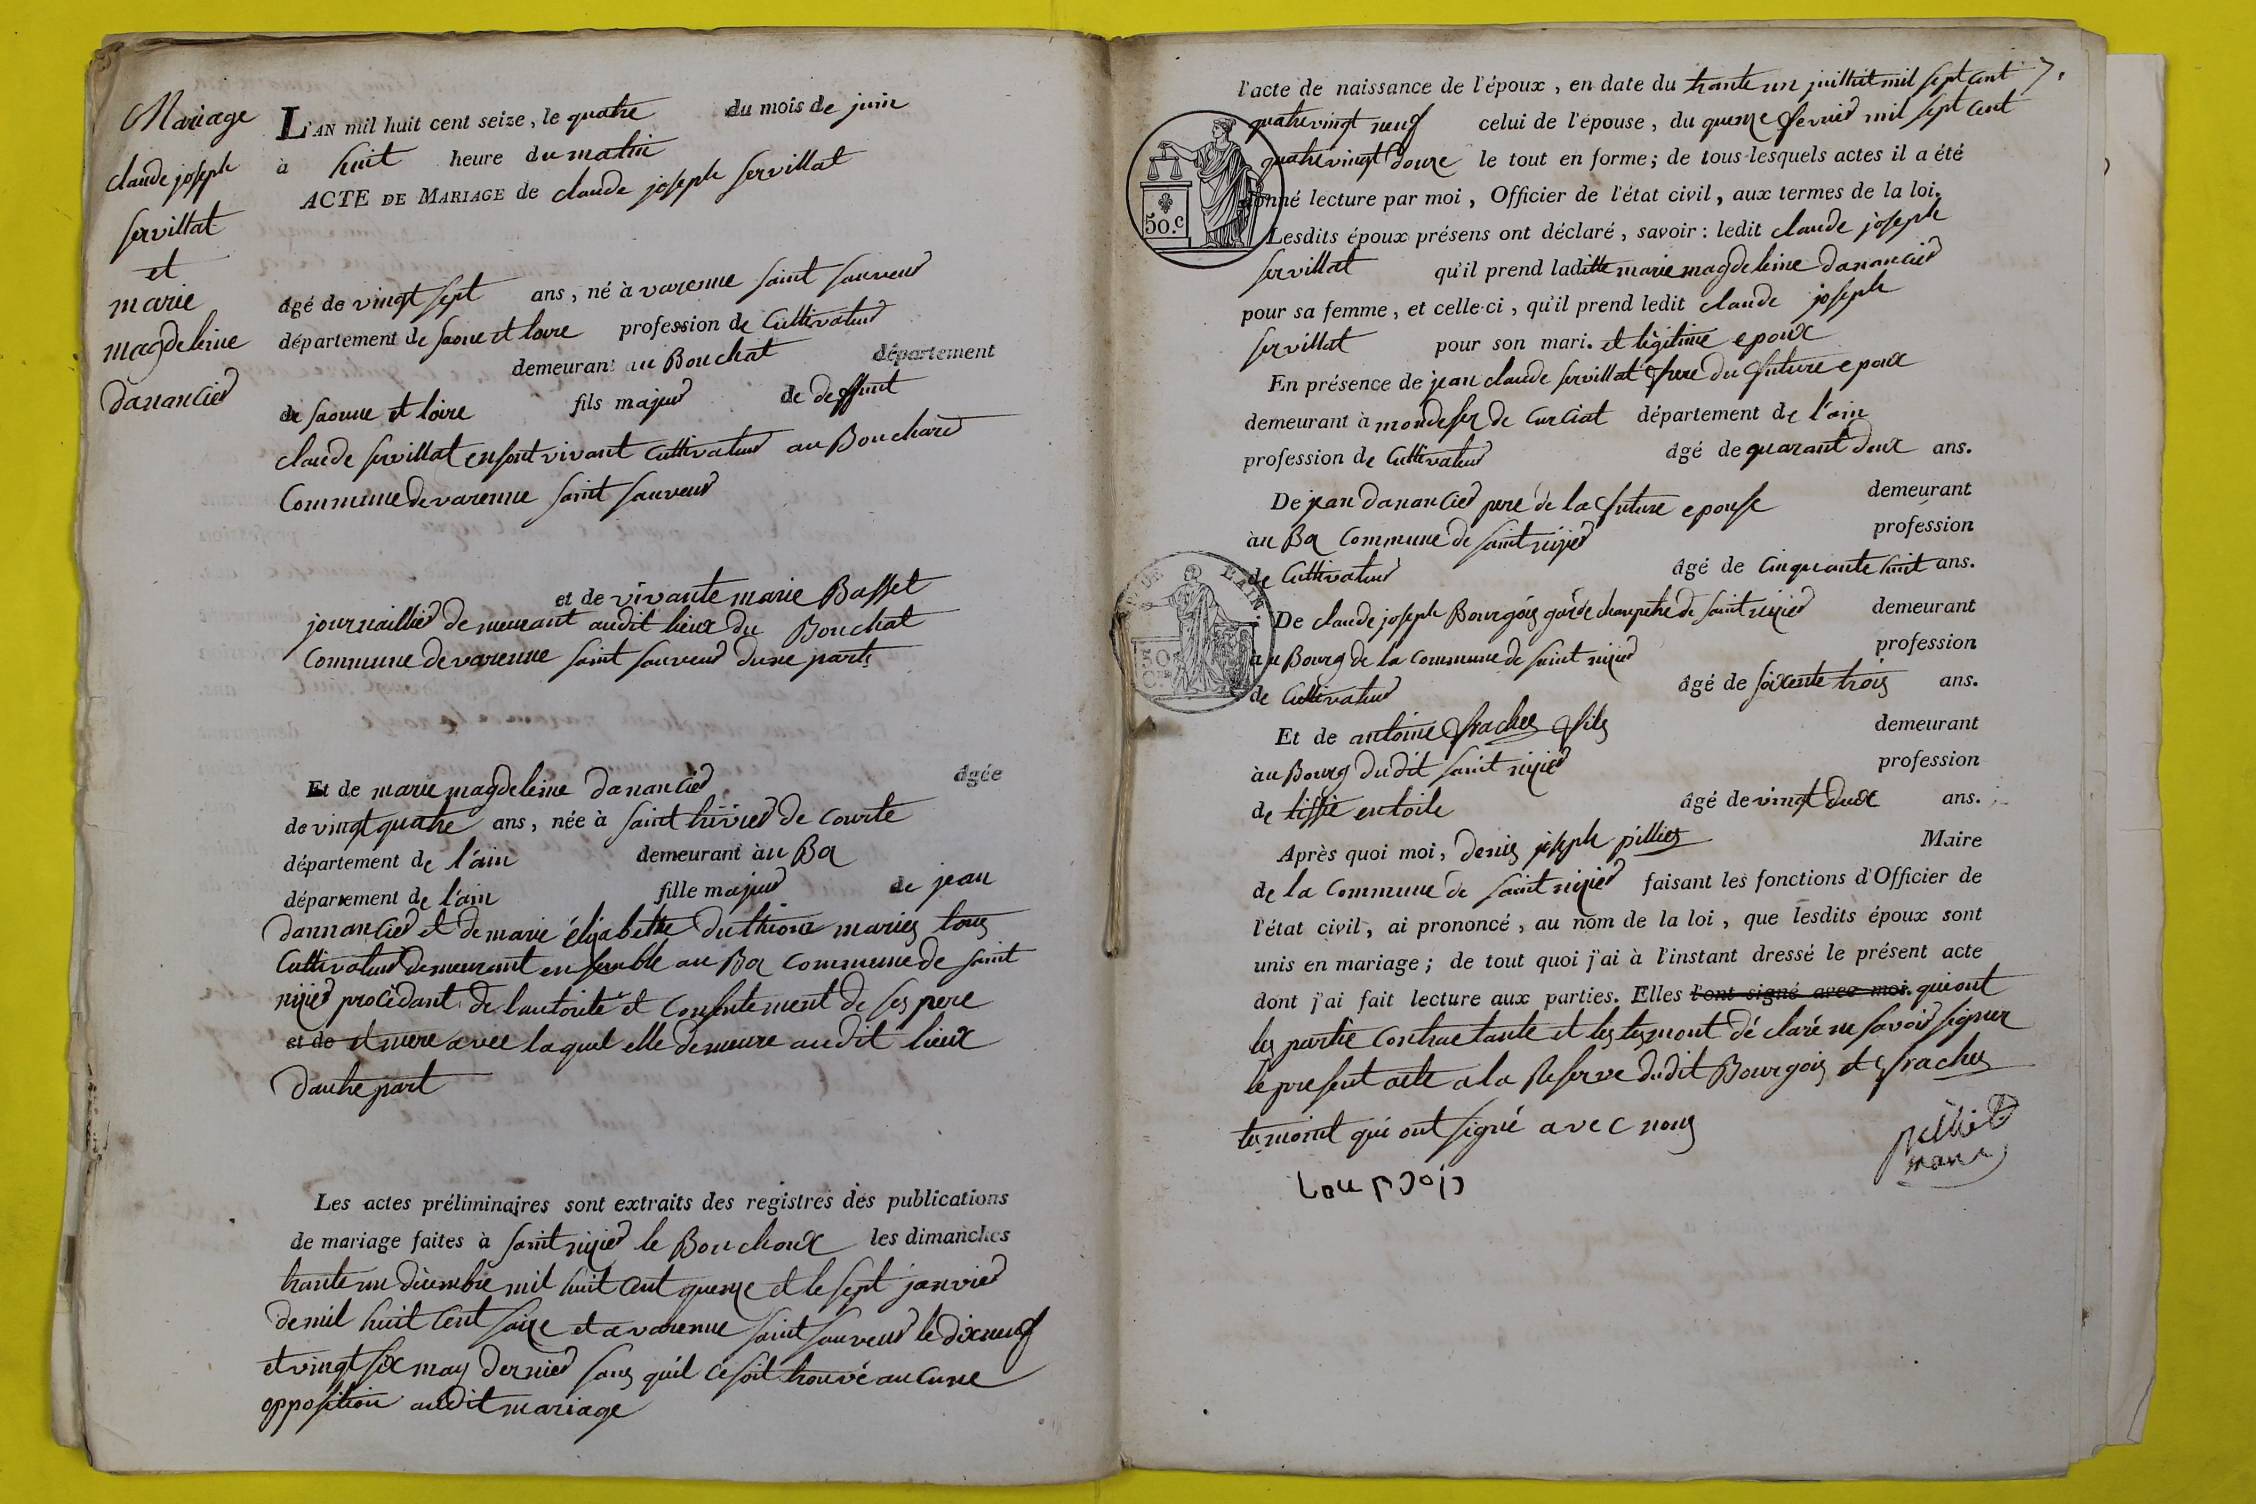 Mariage
claude joseph
servillat
et
marie
magdeleine
danancier
L'AN mil huit cent seize, le quatre du mois de juin
à huit heure du matin
ACTE DE MARIAGE de claude joseph servillat
âgé de vingt sept ans, né à varenne saint sauveur
département de saone et loire profession de Cultivateur
demeurant au Bouchat département
de saonne et loire fils majeur de deffunt
claude servillat en sont vivant Cultivateur au Bouchard
Commune de varenne saint sauveur
et de vivante marie Basset
journaillier demeurant audit lieux du Bouchat
Commune de varenne saint sauveur dune parts
Et de marie magdeleine danancier âgée
de vingt quatre ans, née à saint de courte
département de l'ain demeurant àu Ba
département de l'ain fille majeur de jean
dannancier et de marie élizabette duthion mariez tous
Cultivateur demeurant ensemble au Ba Commune de saint
nizier procédant de lautorité et Consentement de ses pere
et de et mere avec laquel elle demeure audit lieux
dautre part
Les actes préliminaires sont extraits des registres des publications
de mariage faites à saint nizier le Bouchoux les dimanches
trante un décembre mil huit cent quenze et le sept janvier
de mil huit cent saize et a varenne saint sauveur le dixneuf
et vingt six may dernier sans quil ce soit trouvé aucune
opposition audit mariage
7.
l'acte de naissance de l'époux, en date du trante un juillet mil sept cent
quatrevingt neuf celui de l'épouse, du quenze fevrier mil sept cent
quatrevingt douze le tout en forme; de tous lesquels actes il a été
donné lecture par moi, Officier de l'état civil, aux termes de la loi.
50.c
Lesdits époux présens ont déclaré, savoir: ledit claude joseph
servillat qu'il prend laditte marie magdeleine danancier
pour sa femme, et celle-ci, qu'il prend ledit claude joseph
servillat pour son mari. et légitime epoux
En présence de jean claude servillat frere du future epoux
demeurant à mondeser de Curciat département de l'ain
profession de Cultivateur âgé de quarant deux ans.
De jean danancier pere de la future epouse demeurant
àu Ba Commune de saint nizier profession
de Cultivateur âgé de Cinquante huit ans.
De claude joseph Bourgois garde champetre de saint nizier demeurant
au Bourg de la Commune de saint nizier profession
de Cultivateur âgé de soixente trois ans.
Et de antoine frachez fils demeurant
àu Bourg dudit saint nizier profession
de tissie entoile âgé de vingt deux ans.
Après quoi moi, denis joseph pilliez Maire
de la Commune de saint nizier faisant les fonctions d'Officier de
l'état civil, ai prononcé, au nom de la loi, que lesdits époux sont
unis en mariage; de tout quoi j'ai à l'instant dressé le présent acte
dont j'ai fait lecture aux parties. Elles l'ont signé avec moi. qui ont
les partie Contractante et les temont déclaré ne savoir signer
le present acte a la Reserve dudit Bourgois et frachez
temoint qui ont signé avec nous
bourgois
maire